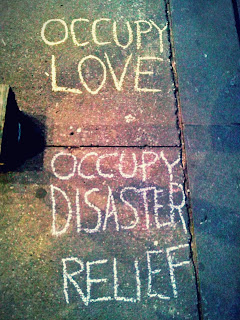 OCCUPY
LOVE
OCCUPY
DISASTER
RELIEF